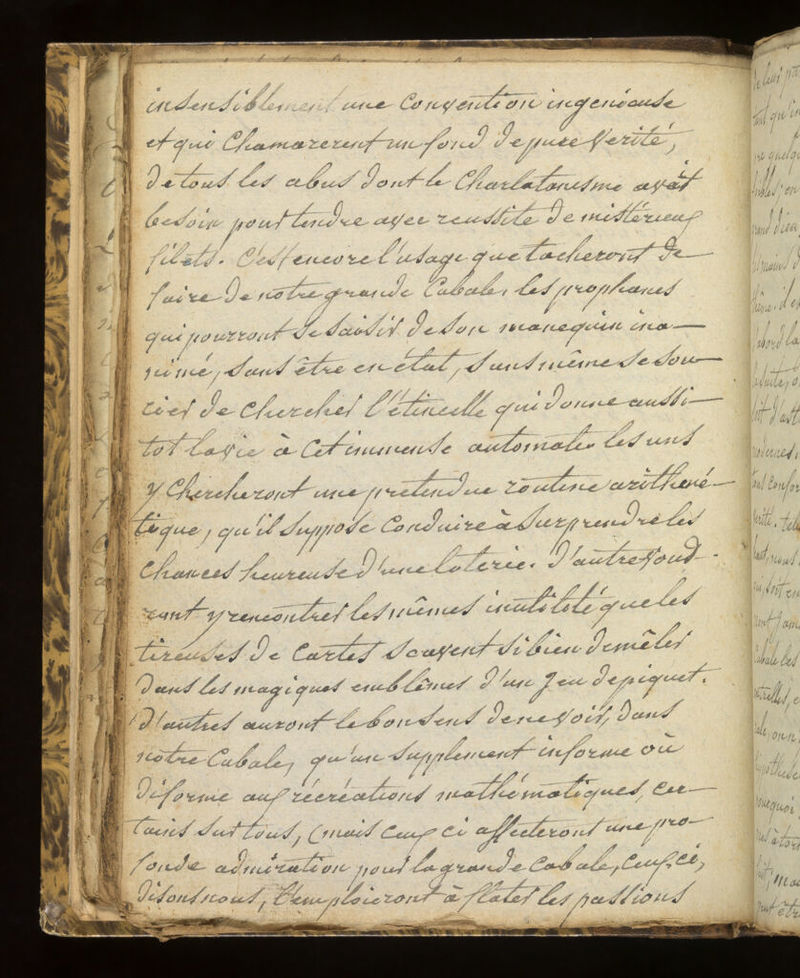 insensiblement une Convention ingenieuse
et qui Chamarerent un fond de pure Verité,
de tous les abus dont le Charlatanisme avoit
besoin pour tendre avec reussite de mistérieux
filets. C'est encore l'usage que tacheront de
faire de notre grande Cabale, les prophanes
qui pourront se saisir de son manequin ina-
nimé, sans être en état, sans même se sou-
cier de chercher l'étincelle qui donne aussi-
tot la vie à Cet immense automate. les uns
y Chercheront une pretendue routine arithmé-
tique, qu'il suppose Conduire à surprendre les
chances heureuse d'une loterie. d'autres voud-
ront y rencontrer les mêmes inutilité que les
tireuses de Cartes savent si bien demêler
dans les magiques emblêmes d'un Jeu de piquet.
d'autres auront le bon sens de ne voir, dans
notre Cabale, qu'un supplement informe où
diforme aux récréations mathématiques, Cer-
tains surtous, (mais Ceux ci affecteront une pro-
fonde admiration pour la grande Cabale, Ceux ci,
disons nous, l'emploieront à flater les passions